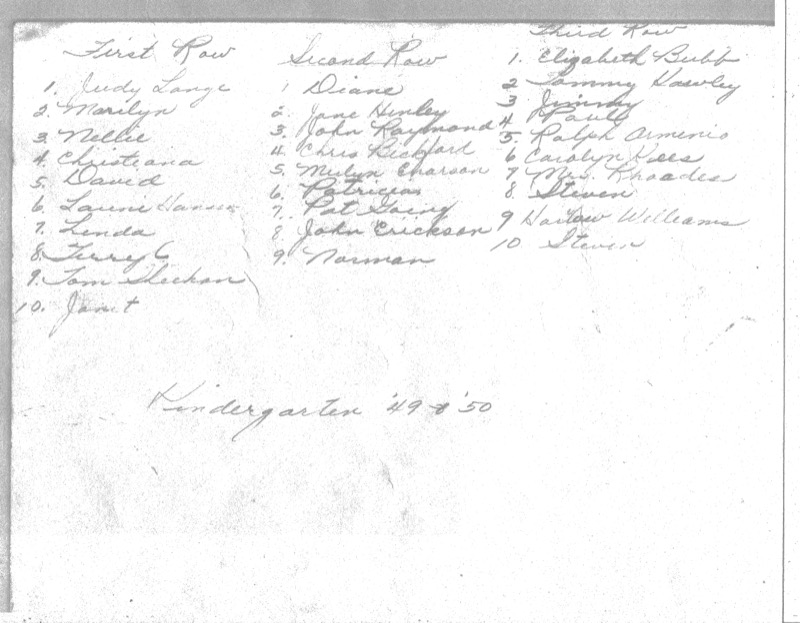 First Row
1. Judy Lange
2. Marilyn
3. Nellie
4. Christeana
5. David
6. Laurie Hansen
7. Linda
8. Terry C
9. Tom Sheehan
10. Janet
Second Row
1 Diane
2. Jane Hinley
3. John Raymond
4. Chris Rickford
5. Merlyn
6. Patricia
7. Pat Going
8 John Erickson
9. Norman
Third Row
1. Elizabeth Bubb
2 Tommy Hawley
3 Jimmy
4 Paul
5. Ralph Armenio
6 Carolyn
7 Mrs. Rhoades
8. Steven
9 Harlow Williams
10 Steven
Kindergarten '49 & '50